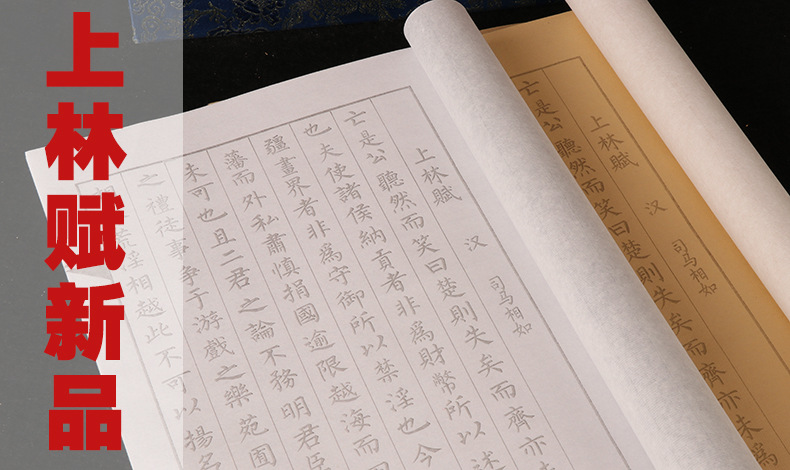 上林赋新品
上林賦 汉 司马相如
亡是公聽然而笑曰楚則失矣而齊亦未爲
上林賦 汉 司马相如
亡是公聽然而笑曰楚則失矣而齊亦
也夫使諸侯納貢者非爲財幣所以述
疆畫界者非爲守御所以禁淫也今
藩而外私肅慎捐國逾限越海而
未可也且二君之論不務明君臣
之禮徒事爭于游戲之樂苑囿
荒淫相越此不可以揚名